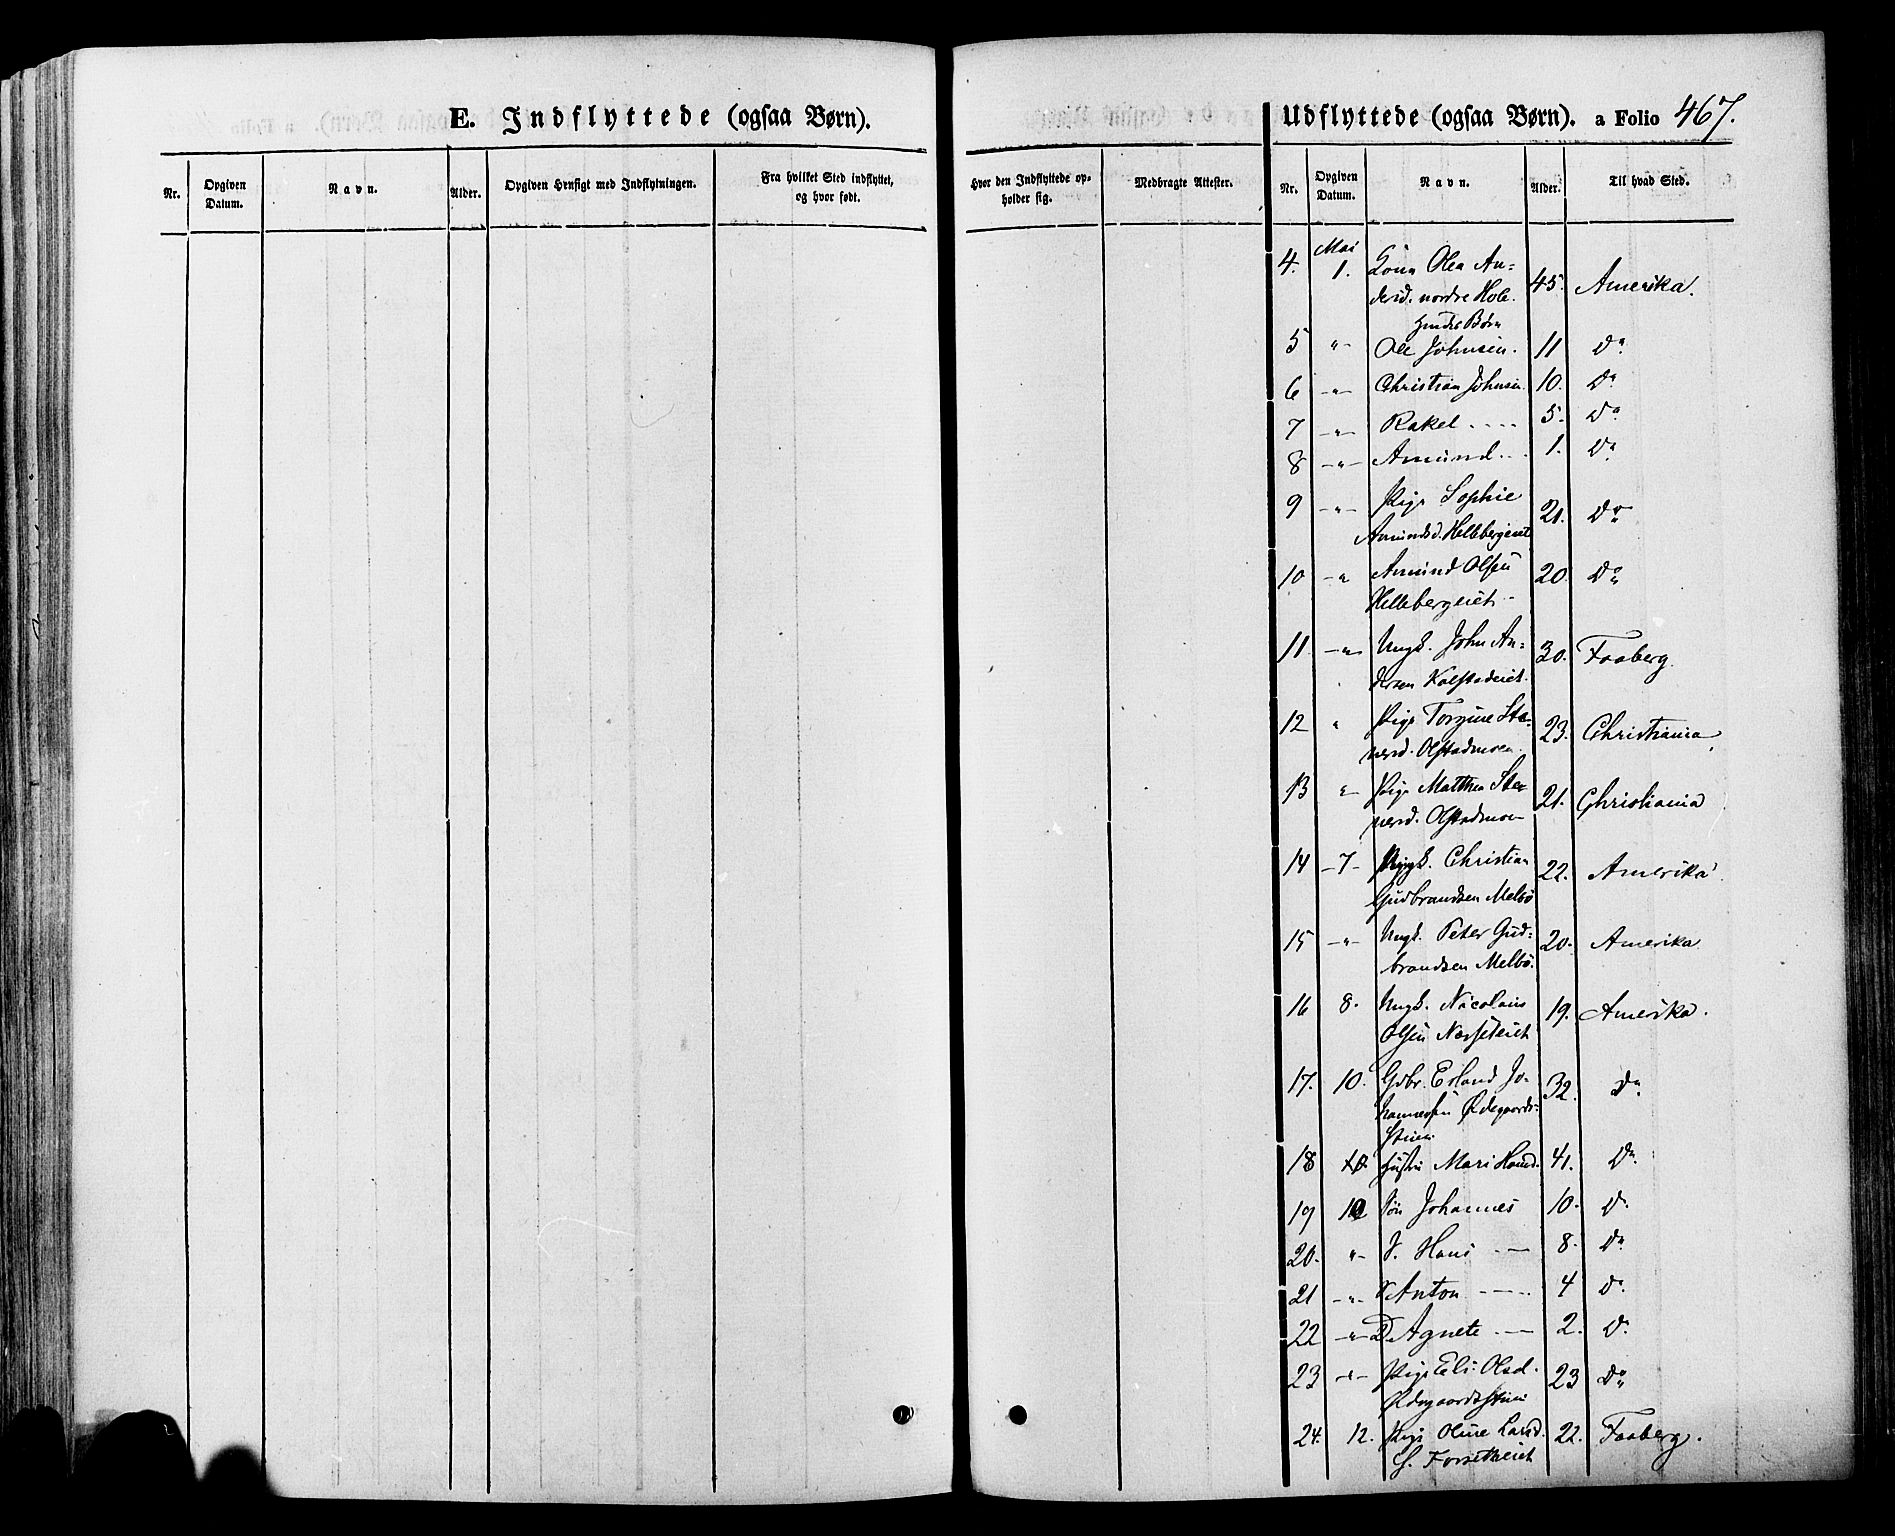 E. Indflyttede (ogsaa Børn).
Nr.
Opgiven Datum.
Navn.
Alder.
Opgiven Hensigt med Indflytningen.
Fra hvilket Sted indflyttet, og hvor født.
Hvor den Indflyttede opholder sig.
Medbragte Attester.
Udflyttede (ogsaa Børn). a Folio 467.
Nr.
Opgiven Datum.
Navn.
Alder.
Til hvad Sted.
Mai
4. 1. Kona Olea An-
dersd. nordre Hole 45. Amerika.
hendes Børn
5 " Ole Johnsen. 11 Do
6 -"- Christian Johnsen 10. Do
7 -"- Rakel .... 5. Do
8 -"- Amund... 1. Do
9 -"- Pige Sophie
Amundsd. Hellebergeiet 21. Do
10 -" Amund Olsen 20. Do
Hellebergeiet -
11 -"- Ungk. John An-
dersen Kolstadeiet. 30. Faaberg.
12 " Pige Torgine Ste-
nersd. Olstadmoen. 23. Christiania
13 "- Pige Matthea Ste-
nersd. Olstadmoen 21. Christiania
14 -7- Ungk. Christian
Gudbrandsen Melbö 22. Amerika
15 -"- Ungk. Peter Gud-
brandsen Melbö. 20. Amerika
16 8. Ungk. Nicolaus
Olsen 19. Amerika.
17. 10. Gdbr. Erland Jo-
hannessen Ødegaards- 32. Do
stuen
18 10 Hustru Mari Hansd. 41. Do
19 10 Søn Johannes 10. Do
20. "- S. Hans - — 8. Do
21 -"- S Anton - - - - 4 Do
22 -"- D Agnete. — 2. Do
23 -"- Pige Eli Olsd. 23 Do
Ødegaardsstuen
24. 12. Pige Oline Larsd. 22. Faaberg.
S. Forsetheiet